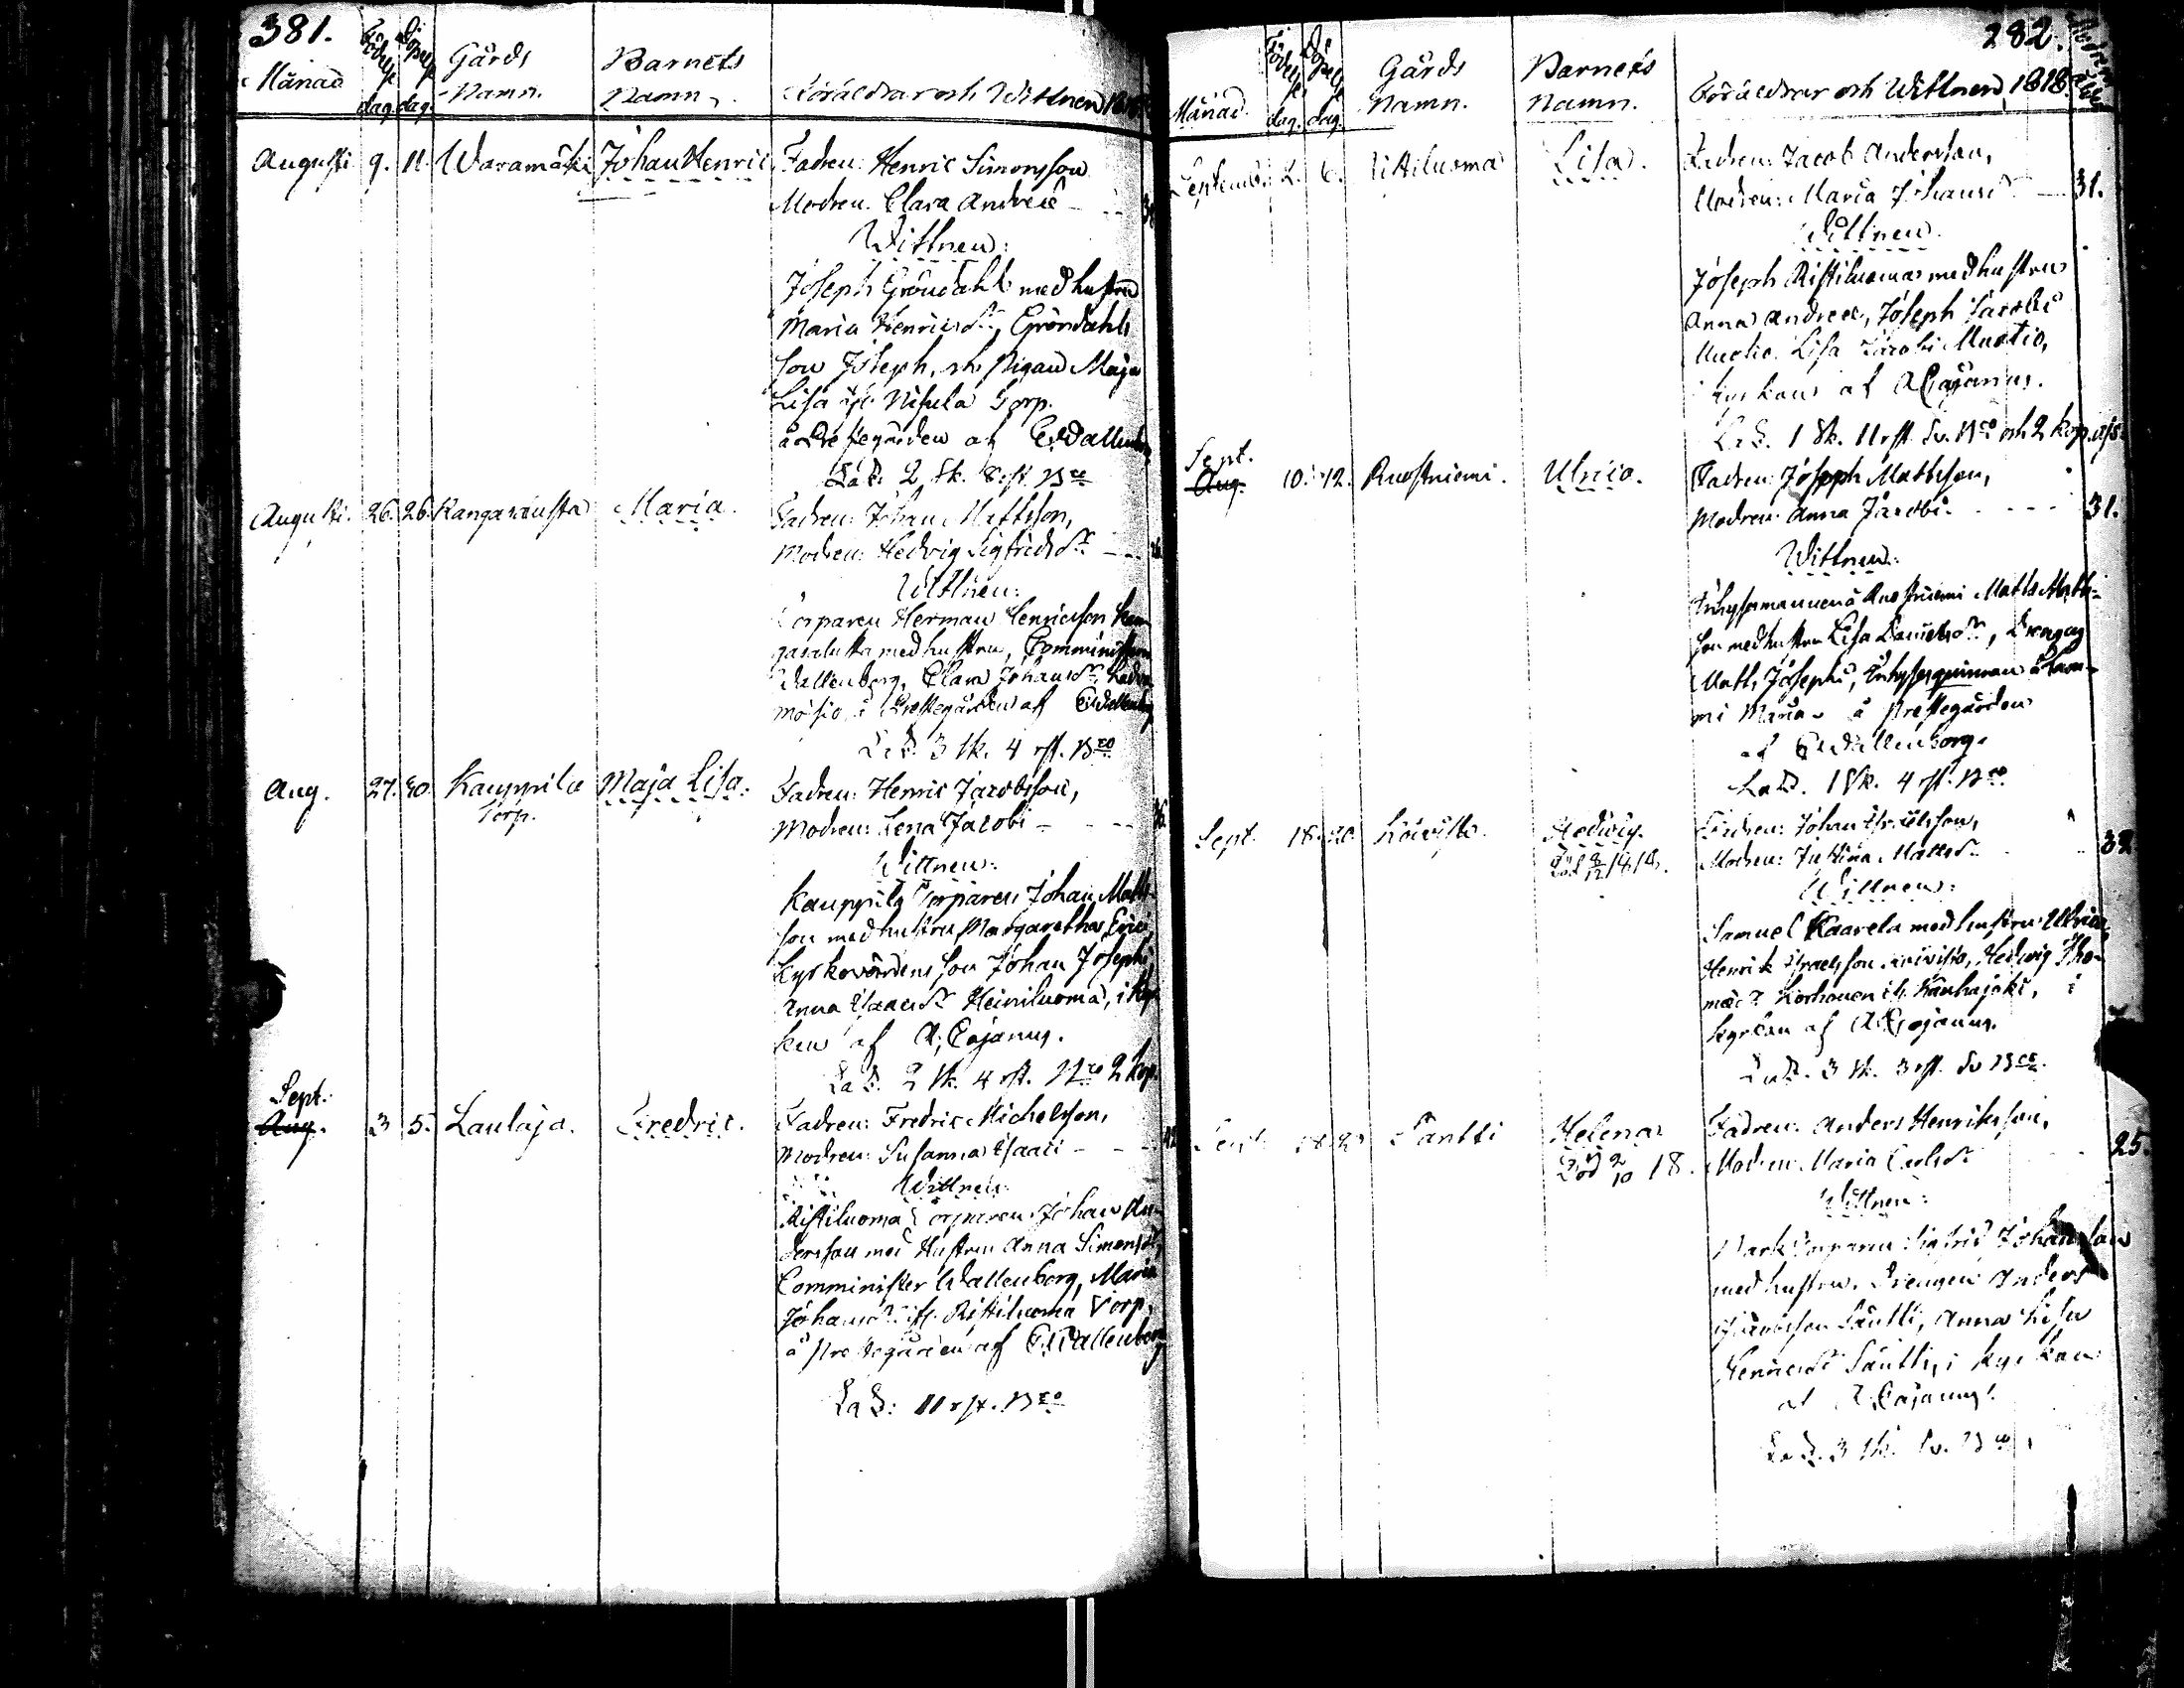 381.
Månad
Födelse dag.
Döpelse dag.
Gårds Namn.
Barnets Namn.
Föräldrar och Wittnen 1818.
Augusti 9. 11. Waramäki Johan Henric Fadren: Henric Simonsson
Modren: Clara Andreæ
Wittnen:
Joseph Gröndahl med hustru
Maria Henricsdr, Gröndahls
son Joseph, och Pigan Maja
Lisa ifr. Nisula Torp.
å Prestegården af E. Wallenborg
La S. 2 sk. 8 rst. Bco
Augusti. 26. 26. Kangaraùsta Maria. Fadren: Johan Mattsson,
Modren: Hedvig Sigfridsdr
Wittnen:
Torparen Herman Henricsson Kan-
gasalusta med hustru, Comministern
Wallenborg, Clara Johansdr
å Prestegården af E. Wallenborg
La S. 3 sk. 4 rst. Bco
Aug. 27. 30. Kauppila Torp. Maja Lisa. Fadren: Henric Jacobsson,
Modren: Lena Jacobi
Wittnen:
Kauppila Torparen Johan Matts-
son med hustru Margaretha Erici,
Kyrkovärdens son Johan Josephi
Anna Isaacsdr Heiniluoma, i Kyr-
kan af A. Cajanus.
La S. 2 sk. 4 rst. Bco 2 kop.
Sept.
Aug. 3 5. Laulaja. Fredric. Fadren: Fredric Michelsson,
Modren: Susanna Isaaci
Wittnen:
Ristiluoma Torparen Johan An-
dersson med Hustru Anna Simonsdr,
Comminister Wallenborg, Maria
Johansdr ifr. Ristiluoma Torp,
å Prestegården af E. Wallenborg
La S: 11 rst. Bco
282.
Månad.
Födelse dag.
Döpelse dag.
Gårds Namn.
Barnets Namn.
Föräldrar och Wittnen, 1818.
Modrens ålder
Septemb. 2. 6. Lisa. Fadren: Jacob Andersson,
Modren: Maria Johansdr 31.
Wittnen.
Joseph Ristiluoma med hustru
Anna Andreæ, Joseph Jacobi
Muotio, Lisa Jacobi Muotio,
kyrkan af A. Cajanus.
La S. 1 sk. 11 rst. Sv. Bco och 2 kop.
Sept.
Aug. 10. 12. Ruostniemi. Ulrica. Fadren: Joseph Mattsson,
Modren: Anna Jacobi 31.
Wittnen:
Inhysesmannen å Ruostniemi Matts Matts-
son med hustru Lisa Danielsdr, Drengen
Matts Josephi, Inhysesqvinnan
Maria å Prestegården
af E. Wallenborg.
La S. 1 sk. 4 rst. Bco
Sept. 18. 20. Koivisto. Hedwig. Fadren: Johan Israelsson,
Död 1818. Modren: Justina Mattsdr 32
Wittnen:
Samuel Kaarela med hustru Ulrica,
Henrik Israelsson Koivisto, Hedvig Tho-
mædr Korhonen ifr. Kauhajoki, i
kyrkan af A. Cajanus.
La S. 3 sk. 3 rst. Sv. Bco.
Sept. Säntti Helena Fadren: Anders Henriksson,
Död 2/10 18. Modren: Maria Carlsdr 25.
Wittnen:
Torparen Sigfrid Johansson
med hustru, Drengen Anders
Jacobsson Säntti, Anna Lisa
Henricsdr Säntti, i kyrkan
af A. Cajanus.
La S. 3 sk. Sv. Bco